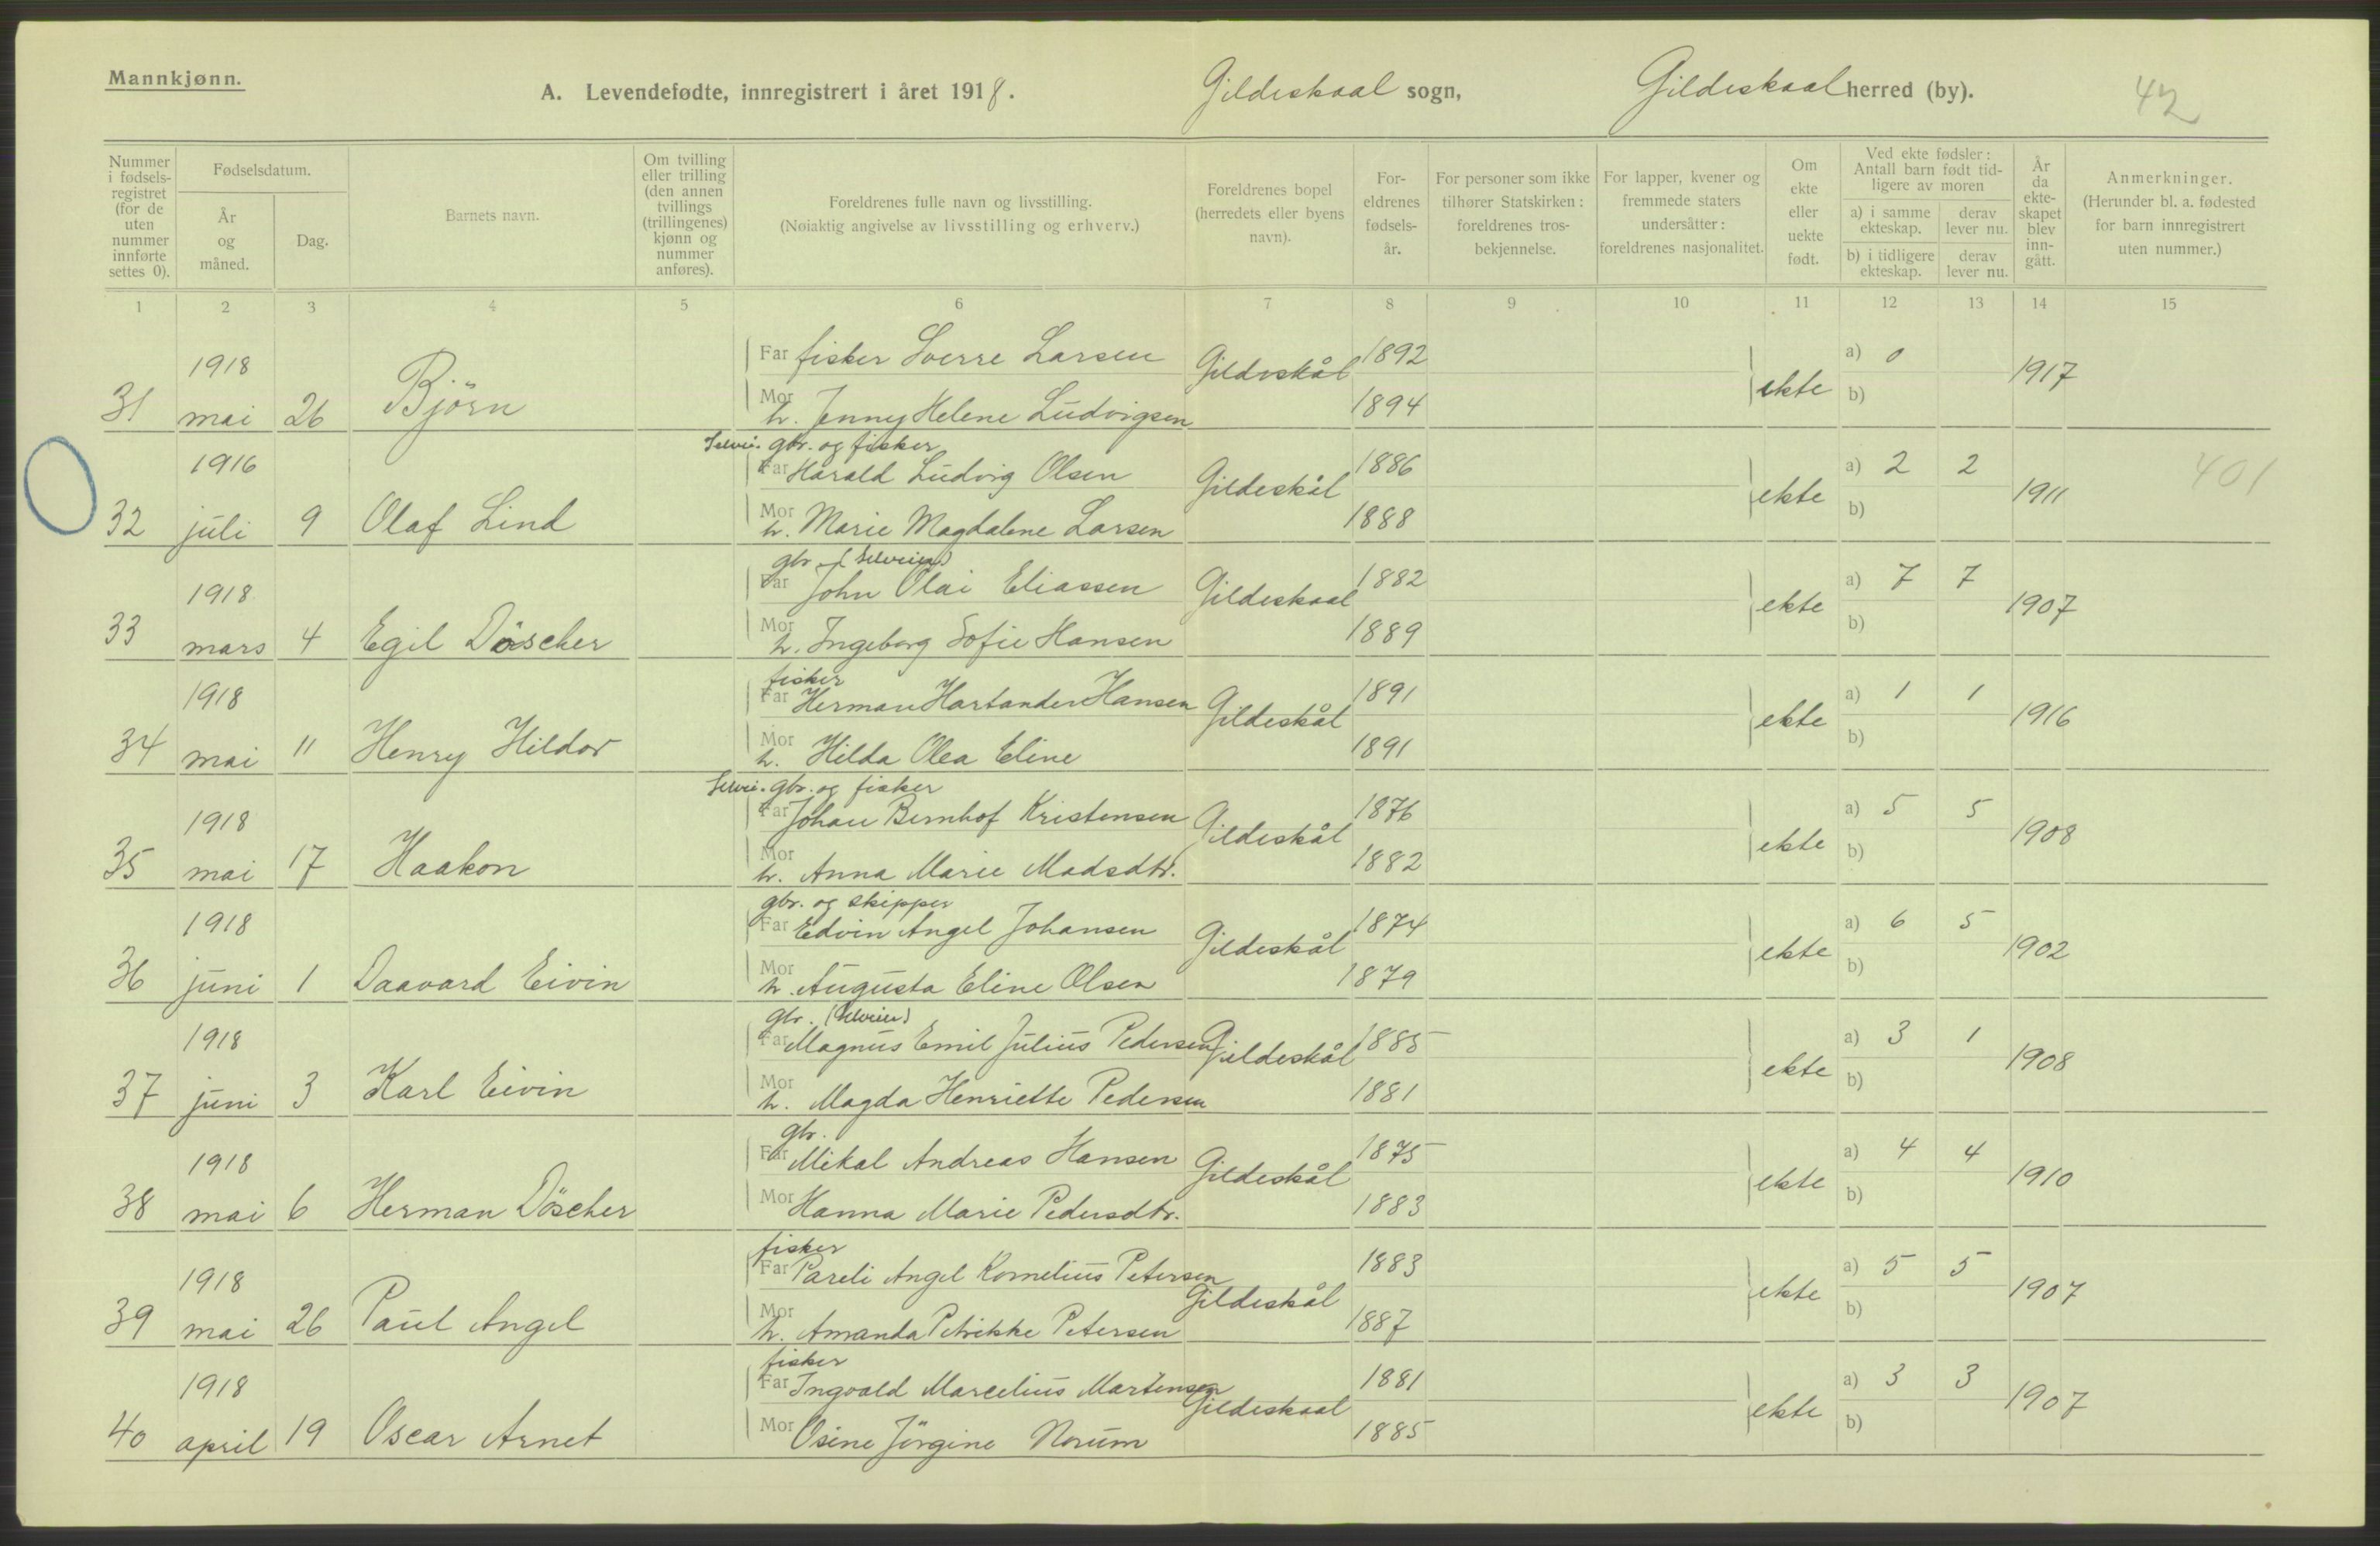 Mannkjønn.
A. Levendefødte, innregistrert i året 1918. Gildeskaal sogn, Gildeskaal herred (by). 42
Nummer i fødsels-registret (for de uten nummer innførte settes 0).
Fødselsdatum.
År og måned.
Dag.
Barnets navn.
Om tvilling eller trilling (den annen tvillings (trillingenes) kjønn og nummer anføres).
Foreldrenes fulle navn og livsstilling.
(Nøiaktig angivelse av livsstilling og erhverv.)
Foreldrenes bopel (herredets eller byens navn).
For-eldrenes fødsels-år.
For personer som ikke tilhører Statskirken: foreldrenes tros-bekjennelse.
For lapper, kvener og fremmede staters undersåtter: foreldrenes nasjonalitet.
Om ekte eller uekte født.
Ved ekte fødsler: Antall barn født tid-ligere av moren
a) i samme ekteskap. derav lever nu.
b) i tidligere ekteskap. derav lever nu.
År da ekte-skapet blev inn-gått.
Anmerkninger.
(Herunder bl. a. fødested for barn innregistrert uten nummer.)
1 2 3 4 5 6 7 8 9 10 11 12 13 14 15
1918 Far fisker Sverre Larsen Gildeskål 1892 a) 0 1917
31 mai 26 Björn Mor h. Jenny Helene Ludvigsen 1894 ekte b)
Selvei. gbr. og fisker
1916 Far Harald Ludvig Olsen Gildeskål 1886 a) 2 2 1911 401
32 juli 9 Olaf Lind Mor h. Marie Magdalene Larsen 1888 ekte b)
gbr. (Selveier)
1918 Far John Olai Eliassen Gildeskaal 1882 a) 7 7 1907
33 mars 4 Egil Döscher Mor h. Ingeborg Sofie Hansen 1889 ekte b)
fisker
1918 Far Herman Hartander Hansen Gildeskål 1891 a) 1 1 1916
34 mai 11 Henry Hildor Mor h. Hilda Olea Eline 1891 ekte b)
Selvei. gbr. og fisker
1918 Far Johan Bernhof Kristensen Gildeskål 1876 a) 5 5 1908
35 mai 17 Haakon Mor h. Anna Marie Madsdtr. 1882 ekte b)
gbr. og skipper
1918 Far Edvin Angel Johansen Gildeskål 1874 a) 6 5 1902
36 juni 1 Daavard Eivin Mor h. Augusta Eline Olsen 1879 ekte b)
gbr. (Selveier)
1918 Far Magnus Emil Julius Pedersen Gildeskål 1885 a) 3 1 1908
37 juni 3 Karl Eivin Mor h. Magda Henriette Pedersen 1881 ekte b)
gbr.
1918 Far Mikal Andreas Hansen Gildeskål 1875 a) 4 4 1910
38 mai 6 Herman Döscher Mor Hanna Marie Pedersdtr. 1883 ekte b)
fisker
1918 Far Pareli Angel Kornelius Petersen Gildeskål 1883 a) 5 5 1907
39 mai 26 Paul Angel Mor h. Amanda Petrikke Petersen 1887 ekte b)
fisker
1918 Far Ingvald Marcelius Martensen Gildeskaal 1881 a) 3 3 1907
40 april 19 Oscar Arnet Mor Osine Jörgine Norum 1885 ekte b)